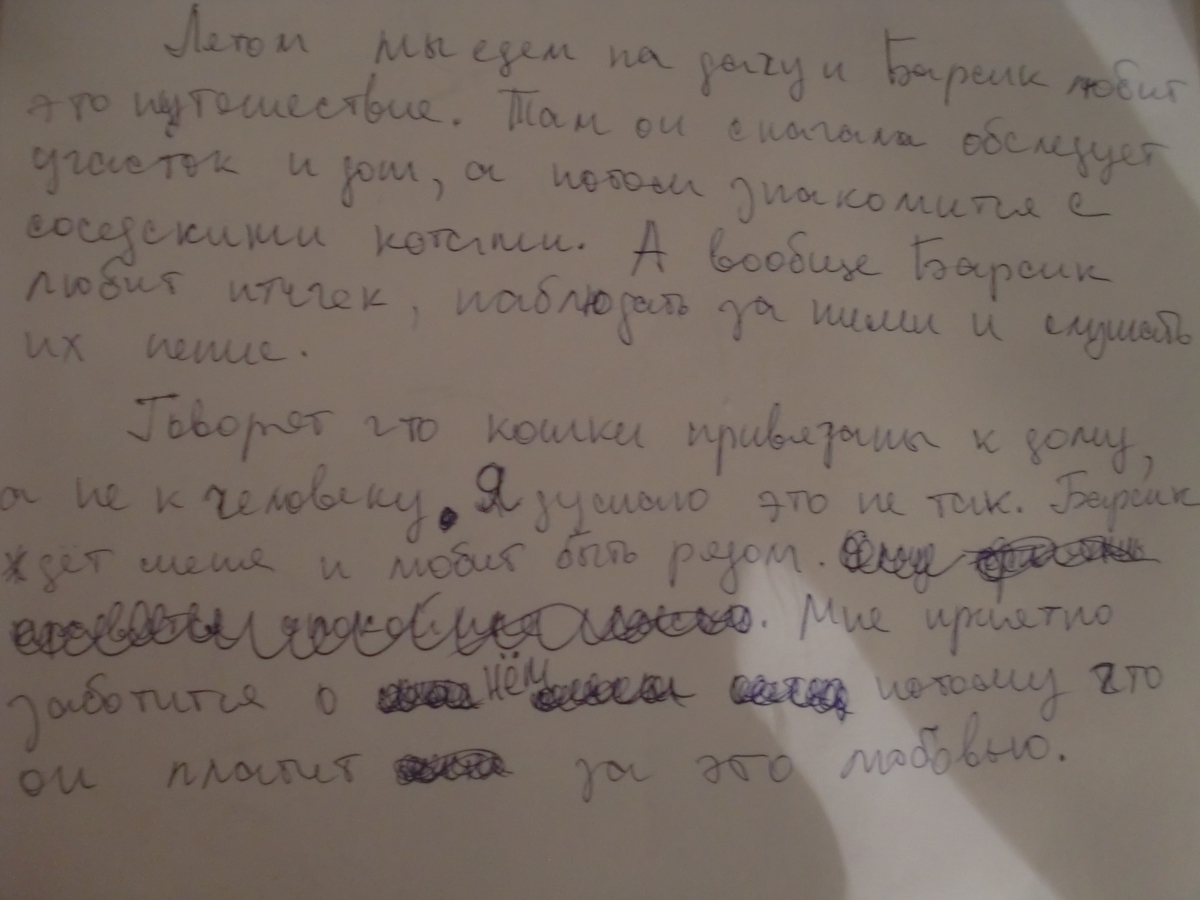 Летом мы едем на дачу и Барсик любит
это путешествие. Там он сначала обследует
участок и дом, а потом знакомится с
соседскими котами. А вообще Барсик
любит птичек, наблюдать за ними и слушать
их пение.
Говорят что кошки привязаны к дому,
а не к человеку. Я думаю это не так. Барсик
ждёт меня и любит быть рядом.
. Мне приятно
заботится о нём потому что
он платит за это любовью.